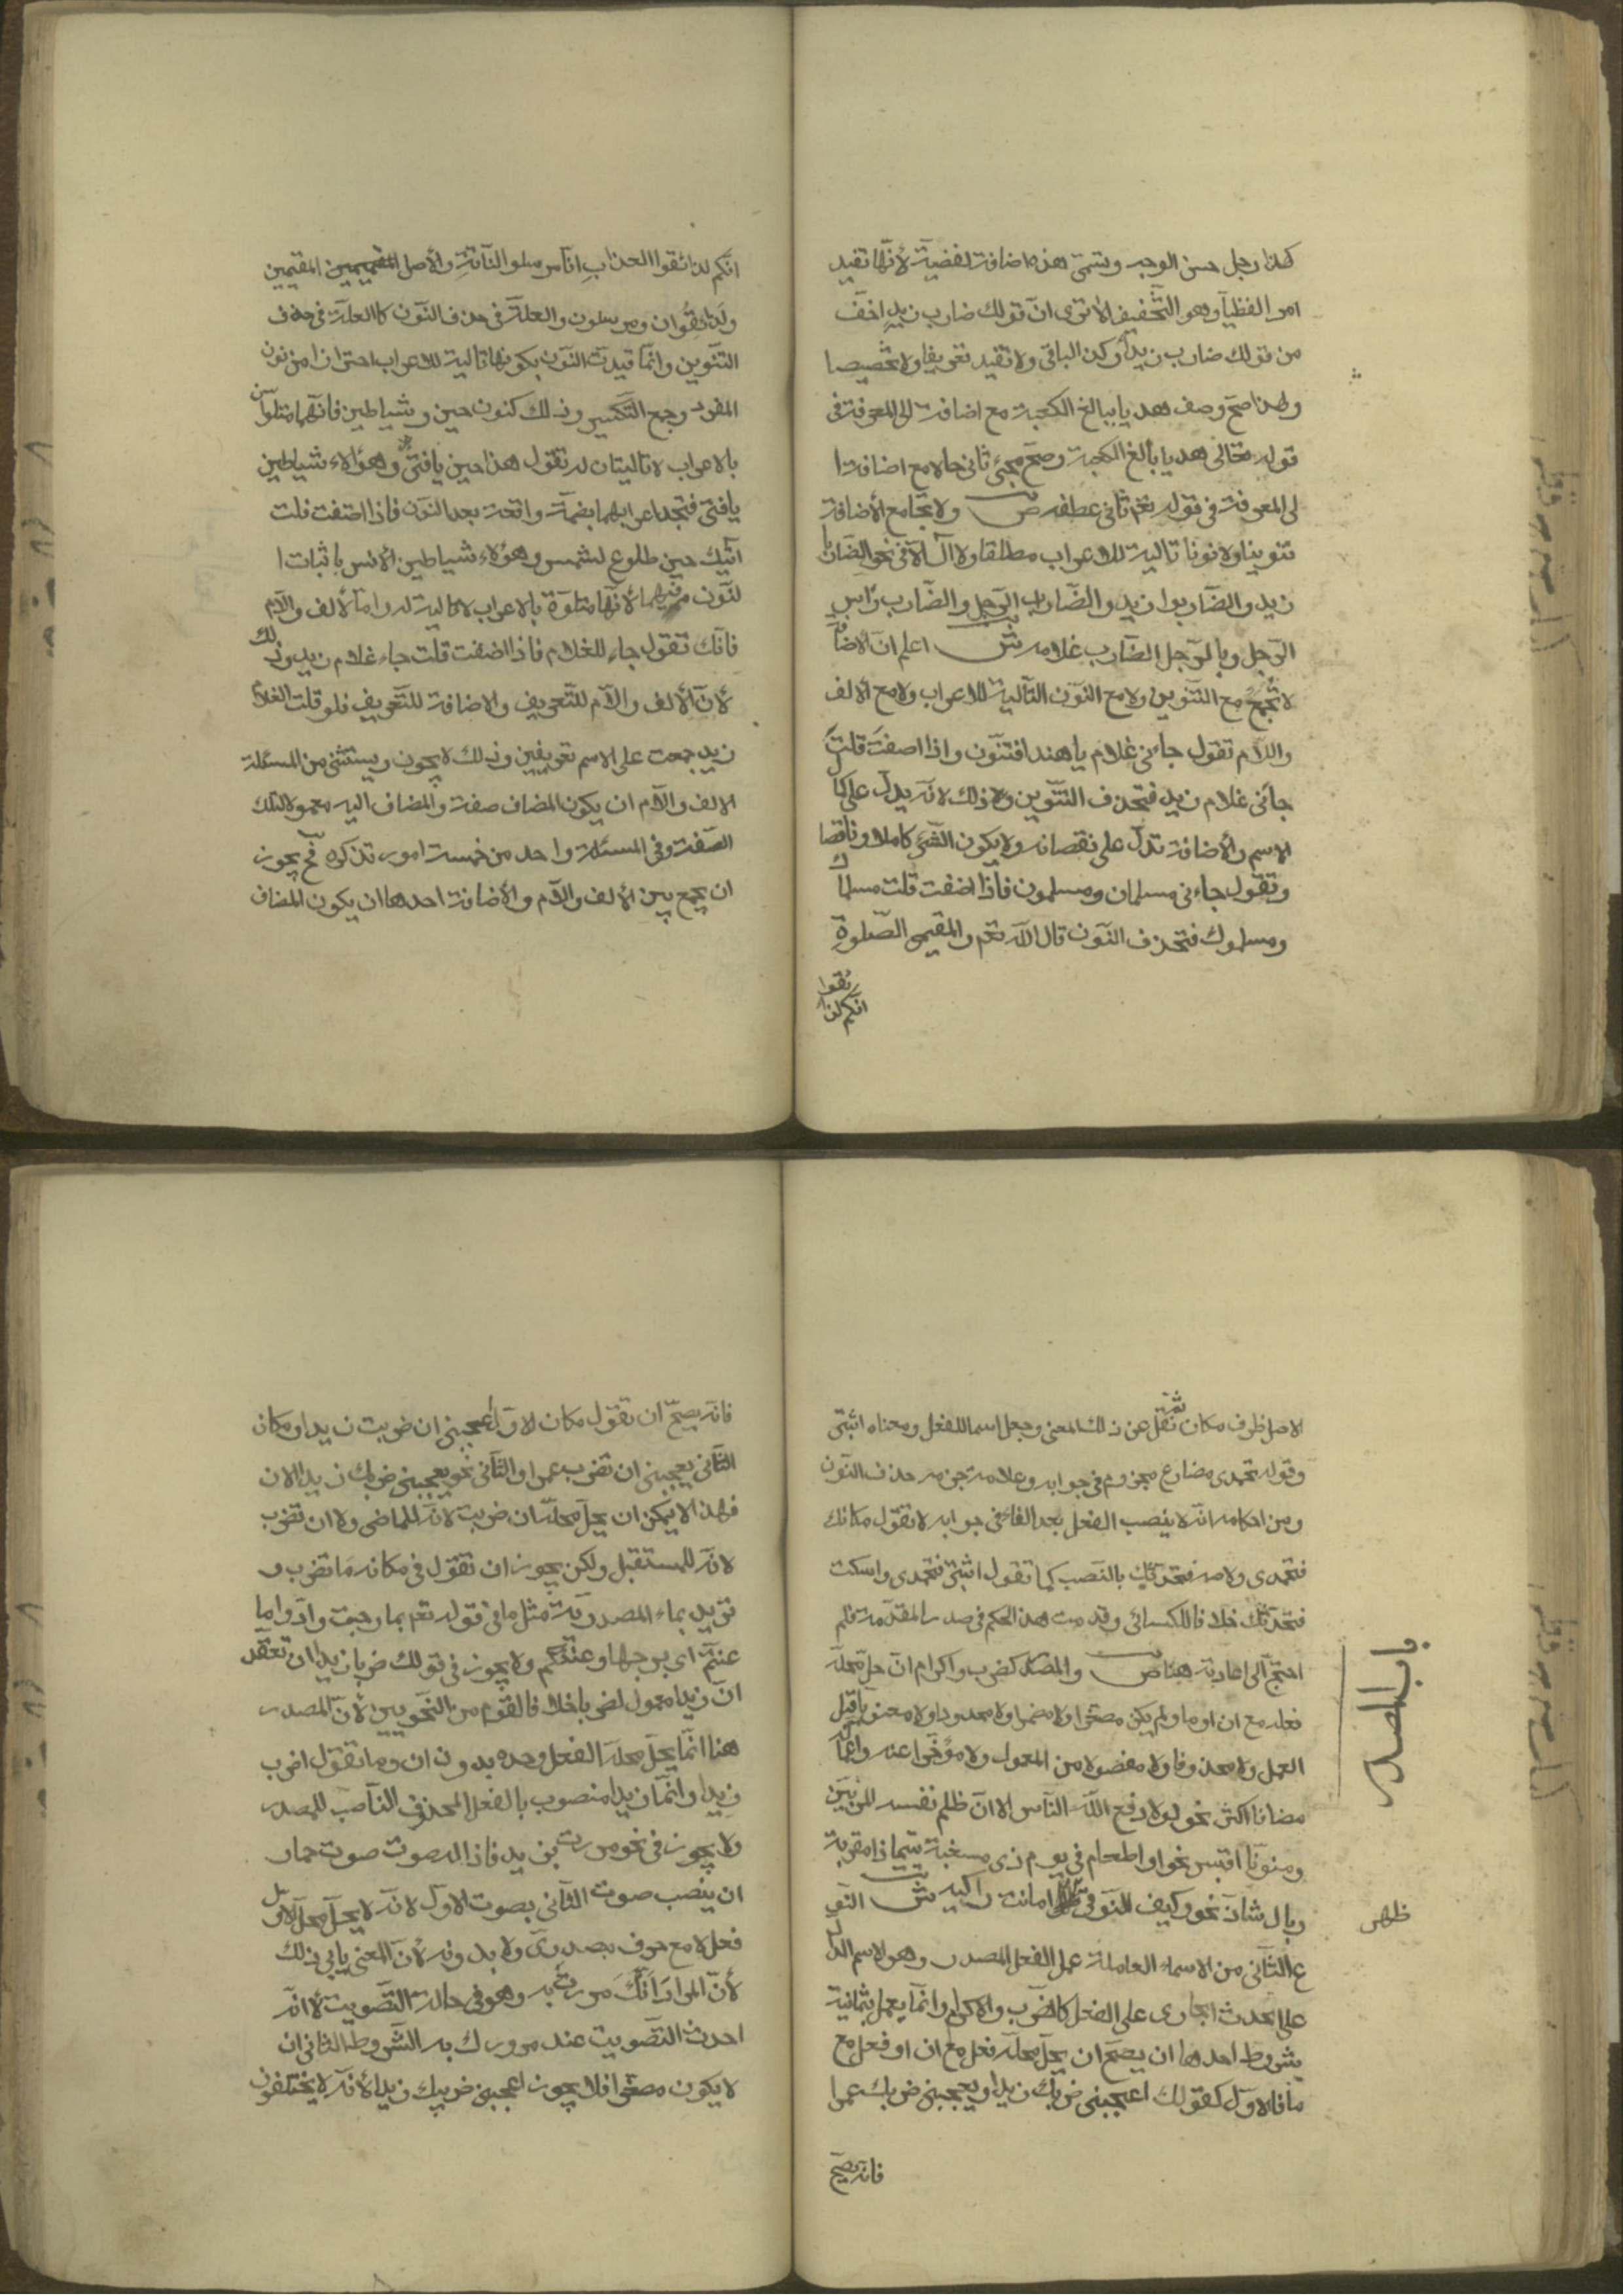 كهذا رجل حسن الوجه وتسمى هذه اضافة لفظية لأنها تفيد
امرا لفظيا وهو التخفيف الا ترى ان قولك ضارب زيد اخف
من قولك ضارب زيدا وكذا الباقي ولا تفيد تعريفا ولا تخصيصا
ولهذا صح وصف هديا ببالغ الكعبة مع اضافته الى المعرفة في
قوله تعالى هديا بالغ الكعبة وصح مجيئ ثاني حالا مع اضافته ا
لى المعرفة في قوله تعم ثاني عطفه ص ولا تجامع الأضافة
تنوينا ولا نونا تالية للاعراب مطلقا ولا ال الا في نحو الضاربا
زيد والضاربوا زيد والضارب الرجل والضارب رأس
الرجل وبالرجل الضارب غلامه ش اعلم ان الاضافة
لا تجمع مع التنوين ولا مع النون التالية للاعراب ولا مع الالف
واللام تقول جاءني غلام يا هذا فتنون واذا اضفت قلت
جاءني غلام زيد فتحذف التنوين وذلك لانه يدل على كمال
الاسم والأضافة تدل على نقصانه ولا يكون الشئ كاملا وناقصا
وتقول جاءني مسلمان ومسلمون فاذا اضفت قلت مسلماك
ومسلموك فتحذف النون قال الله تعم والمقيمى الصلوة
انكم لذائقوا
انكم لذائقوا العذاب انا مرسلو الناقة والأصل المقيمين المقيمين
ولذائقوان ومرسلون والعلة في حذف النون كالعلة في حذف
التنوين وانما قيدت النون بكونها تالية للاعراب احترازا من نون
المفرد وجمع التكسير وذلك كنون حين وشياطين فانهما متلوان
بالاعراب لا تاليتان له تقول هذا حين يا فتى وهؤلاء شياطين
يا فتى فتجد اعرابهما بضمة واقعة بعد النون فاذا اضفت قلت
اتيك حين طلوع الشمس وهؤلاء شياطين الأنس باثبات ا
لنون فيهما لأنها متلوة بالاعراب لا تالية له واما الألف واللام
فانك تقول جاء الغلام فاذا اضفت قلت جاء غلام زيد وذلك
لأن الألف واللام للتعريف والاضافة للتعريف فلو قلت الغلام
زيد جمعت على الاسم تعريفين وذلك لا يجوز ويستثنى من المسئلة
الالف واللام ان يكون المضاف صفة والمضاف اليه معمولا لتلك
الصفة وفي المسئلة واحد من خمسة امور تذكره فح يجوز
ان يجمع بين الألف واللام والأضافة احدها ان يكون المضاف
الاصل ظرف مكان ثم نقل عن ذلك المعنى وجعل اسما للفعل ومعناه اثبتى
وقوله تحمدى مضارع مجزوم في جوابه وعلامة جزمه حذف النون
ومن احكامه انه لا ينصب الفعل بعد الفاء في جوابه لا تقول مكانك
فتحمدى ولا صه فتحدثك بالنصب كما تقول اثبتى فتحمدى واسكت
فتحدثك خلافا للكسائي وقد مت هذا الحكم في صدر المقدمة فلم
احتج الى اعادته هنا ص والمصدر كضرب واكرام ان حل محله
فعل مع ان او ما ولم يكن مصغرا ولا مضمرا ولا محدودا ولا منعوتا قبل
العمل ولا محذوفا ولا مفصولا من المعمول ولا مؤخرا عنه واعماله
مضافا اكثر نحو لولا دفع الله الناس الا ان ظلم نفسه المرء بين
ومنونا اقيس نحو او اطعام في يوم ذى مسغبة يتيما ذا مقربة
وبال شاذ نحو وكيف التوقى ظهر ما انت راكبه ش النو
ع الثاني من الاسماء العاملة عمل الفعل المصدر وهو الاسم الدال
على الحدث الجارى على الفعل كالضرب والاكرام وانما يعمل بثمانية
شروط احدها ان يصح ان يحل محله فعل مع ان او فعل مع
ما فالاول كقولك اعجبني ضربك زيدا ويعجبني ضربك عمرا
فانه يصح
باب المصدر
ظهر
فانه يصح ان تقول مكان الاول اعجبني ان ضربت زيدا ومكان
الثاني يعجبني ان تضرب عمرا والثاني نحو يعجبني ضربك زيدا الان
فهذا لا يمكن ان يحل محله ان ضربت لانه للماضى ولا ان تضرب
لانه للمستقبل ولكن يجوز ان تقول في مكانه ما تضرب و
تريد بماء المصدرية مثل ما في قوله تعم بما رحبت وادوا ما
عنتم اى برحبها وعنتكم ولا يجوز في قولك ضربا زيدا ان تعتقد
ان زيدا معمول لضربا خلافا لقوم من النحويين لأن المصدر
هنا انما يحل محله الفعل وحده بدون ان وما تقول اضرب
زيدا وانما زيدا منصوب بالفعل المحذوف الناصب للمصدر
ولا يجوز في نحو مررت بزيد فاذا له صوت صوت حمار
ان ينصب صوت الثاني بصوت الاول لانه لا يحل محل الاول
فعل لا مع حرف مصدرى ولا بدونه لأن المعنى يابى ذلك
لأن المراد انك مررت به وهو في حالة التصويت لا انه
احدث التصويت عند مرورك به الشروط الثاني ان
لا يكون مصغرا فلا يجوز اعجبني ضريبك زيدا لأنه لا يختلفون